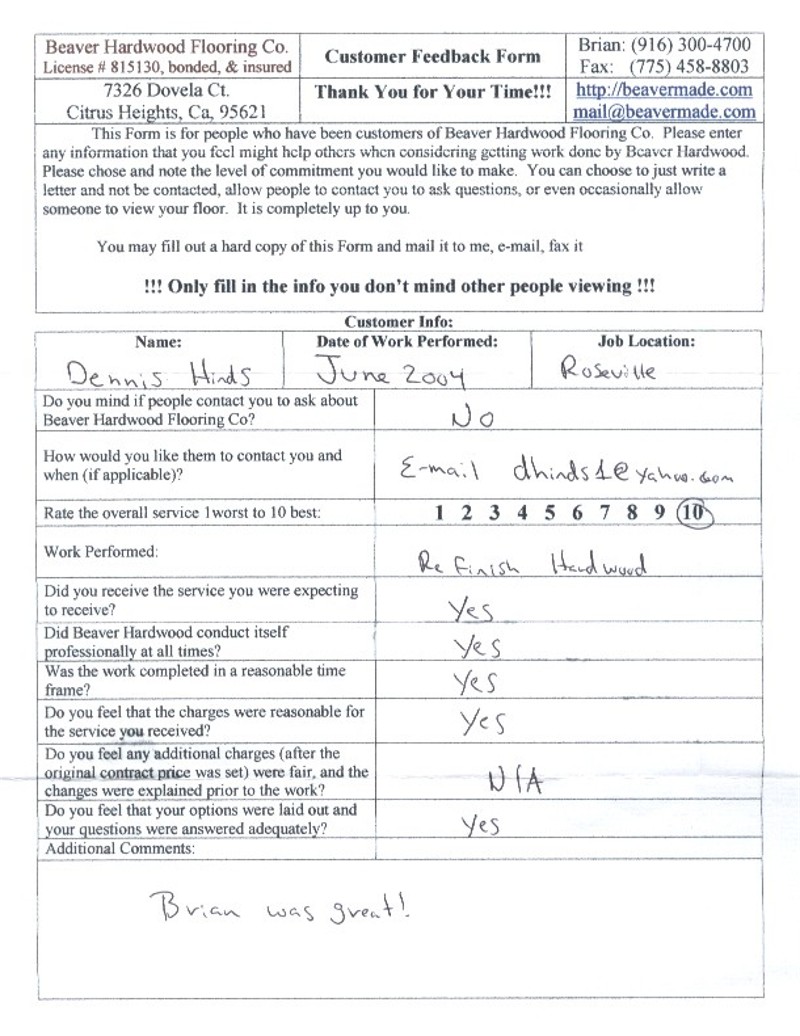 Beaver Hardwood Flooring Co.
License # 815130, bonded, & insured
Customer Feedback Form
Brian: (916) 300-4700
Fax: (775) 458-8803
7326 Dovela Ct.
Citrus Heights, Ca, 95621
Thank You for Your Time!!!
http://beavermade.com
mail@beavermade.com
This Form is for people who have been customers of Beaver Hardwood Flooring Co. Please enter
any information that you feel might help others when considering getting work done by Beaver Hardwood.
Please chose and note the level of commitment you would like to make. You can choose to just write a
letter and not be contacted, allow people to contact you to ask questions, or even occasionally allow
someone to view your floor. It is completely up to you.
You may fill out a hard copy of this Form and mail it to me, e-mail, fax it
!!! Only fill in the info you don't mind other people viewing !!!
Customer Info:
Name:
Dennis Hinds
Date of Work Performed:
June 2004
Job Location:
Roseville
Do you mind if people contact you to ask about
Beaver Hardwood Flooring Co?
No
How would you like them to contact you and
when (if applicable)?
E-mail dhinds1@yahoo.com
Rate the overall service 1worst to 10 best:
1 2 3 4 5 6 7 8 9 10
Work Performed:
Refinish Hardwood
Did you receive the service you were expecting
to receive?
Yes
Did Beaver Hardwood conduct itself
professionally at all times?
Yes
Was the work completed in a reasonable time
frame?
Yes
Do you feel that the charges were reasonable for
the service you received?
Yes
Do you feel any additional charges (after the
original contract price was set) were fair, and the
changes were explained prior to the work?
N/A
Do you feel that your options were laid out and
your questions were answered adequately?
Yes
Additional Comments:
Brian was great!